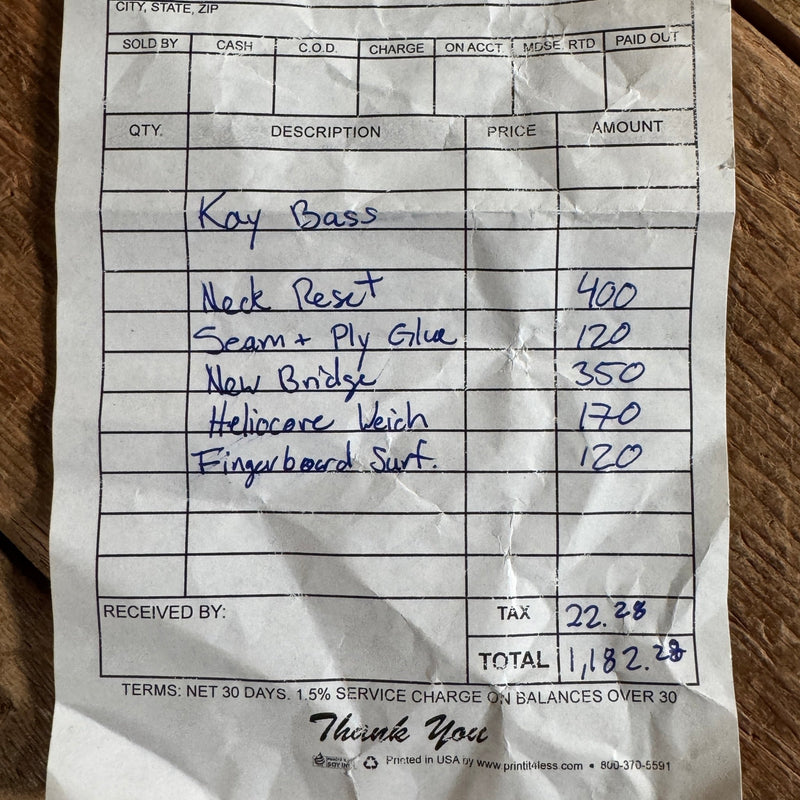 CITY, STATE, ZIP
SOLD BY CASH C.O.D. CHARGE ON ACCT. MDSE. RTD PAID OUT
QTY. DESCRIPTION PRICE AMOUNT
Kay Bass
Neck Reset 400
Seam + Ply Glue 120
New Bridge 350
Heliocore Weich 170
Fingerboard Surf. 120
RECEIVED BY: TAX 22.28
TOTAL 1,182.28
TERMS: NET 30 DAYS. 1.5% SERVICE CHARGE ON BALANCES OVER 30
Thank You
Printed in USA by www.printit4less.com • 800-370-5591